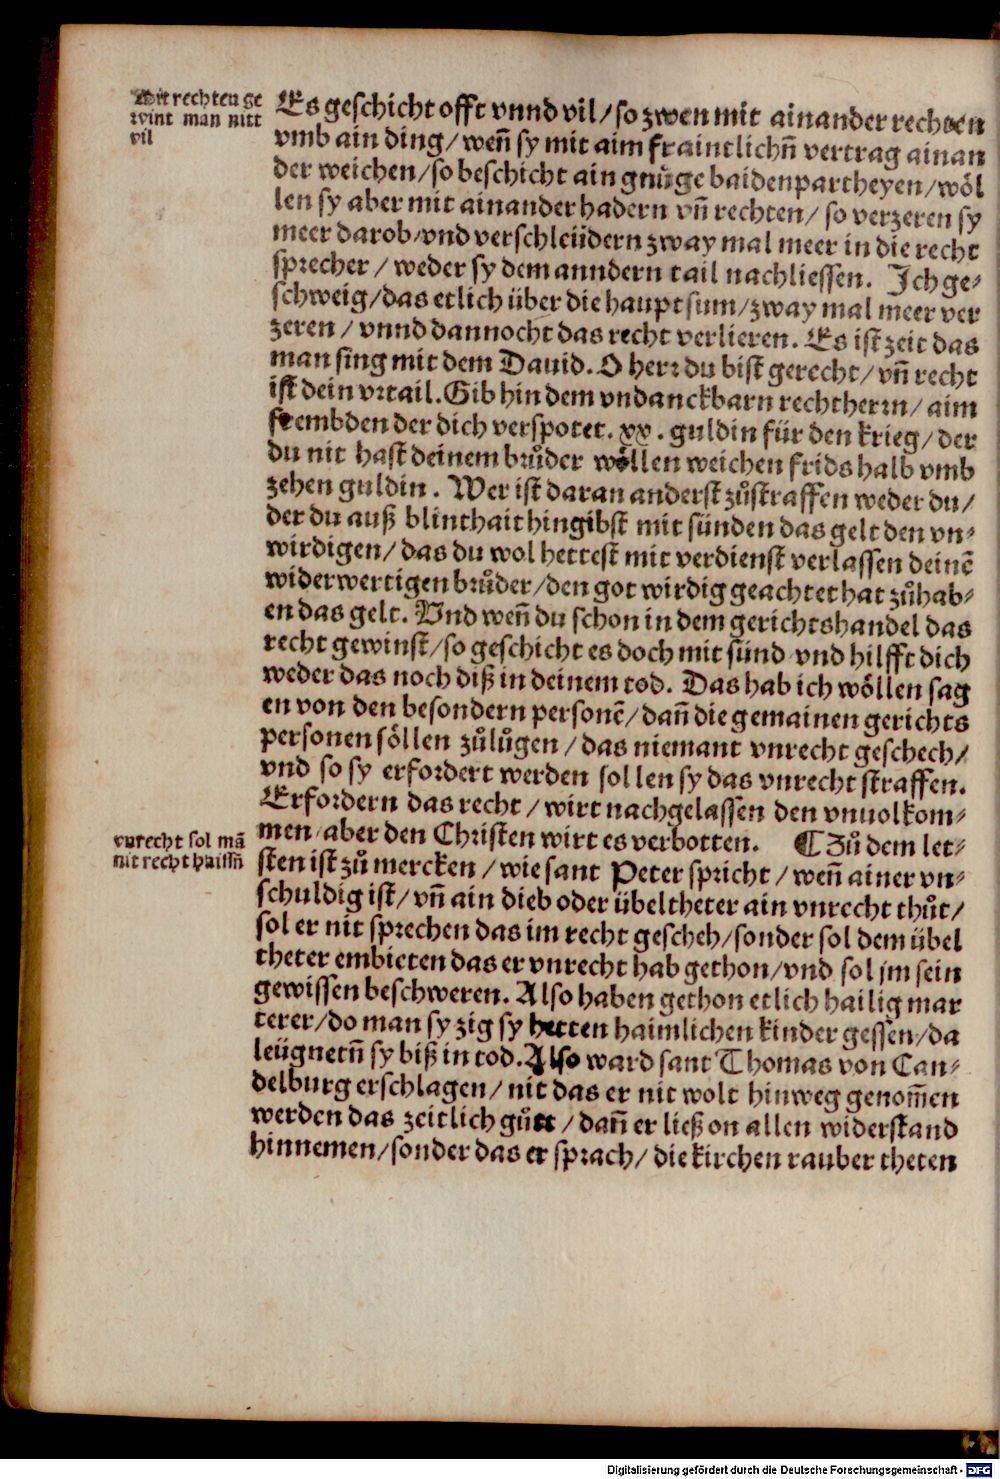 Mit rechten ge
wint man nitt
vil
Es geschicht offt vnnd vil/ so zwen mit ainander rechten
vmb ain ding/ weñ sy mit aim fraintlichñ vertrag ainan
der weichen/ so beschicht ain gnuͤge baiden partheyen/ wöl
len sy aber mit ainander hadern vñ rechten/ so verzeren sy
meer darob/ vnd verschleüdern zway mal meer in die recht
sprecher/ weder sy dem anndern tail nachliessen. Ich ge⸗
schweig/ das etlich über die haupt sum/ zway mal meer ver
zeren/ vnnd dannocht das recht verlieren. Es ist zeit das
man sing mit dem Dauid. O herr du bist gerecht/ vñ recht
ist dein vrtail. Gib hin dem vndanckbarn rechtherrn/ aim
frembden der dich verspotet. xx. guldin für den krieg/ der
du nit hast deinem bruͦder wöllen weichen frids halb vmb
zehen guldin. Wer ist daran anderst zuͦstraffen weder du/
der du auß blinthait hingibst mit sünden das gelt den vn⸗
wirdigen/ das du wol hettest mit verdienst verlassen deinē
widerwertigen bruͦder/ den got wirdig geachtet hat zuͦhab⸗
en das gelt. Vnd weñ du schon in dem gerichtshandel das
recht gewinst/ so geschicht es doch mit sünd vnd hilfft dich
weder das noch diß in deinem tod. Das hab ich wöllen sag
en von den besondern personē/ dañ die gemainen gerichts
personen söllen zuͦluͦgen/ das niemant vnrecht geschech/
vnd so sy erfordert werden sollen sy das vnrecht straffen.
Erfordern das recht/ wirt nachgelassen den vnuolkom⸗
men/ aber den Christen wirt es verbotten. ¶ Zuͦ dem let⸗
vnrecht sol mā
nit recht haissñ
sten ist zuͦ mercken/ wie sant Peter spricht/ weñ ainer vn⸗
schuldig ist/ vñ ain dieb oder übeltheter ain vnrecht thuͦt/
sol er nit sprechen das im recht gescheh/ sonder sol dem übel
theter embieten das er vnrecht hab gethon/ vnd sol jm sein
gewissen beschweren. Also haben gethon etlich hailig mar
terer/ do man sy zig sy hetten haimlichen kinder gessen/ da
leügnetñ sy biß in tod. Also ward sant Thomas von Can⸗
delburg erschlagen/ nit das er nit wolt hinweg genom̃en
werden das zeitlich guͦtt/ dañ er ließ on allen widerstand
hinnemen/ sonder das er sprach/ die kirchen rauber theten
Digitalisierung gefördert durch die Deutsche Forschungsgemeinschaft - DFG